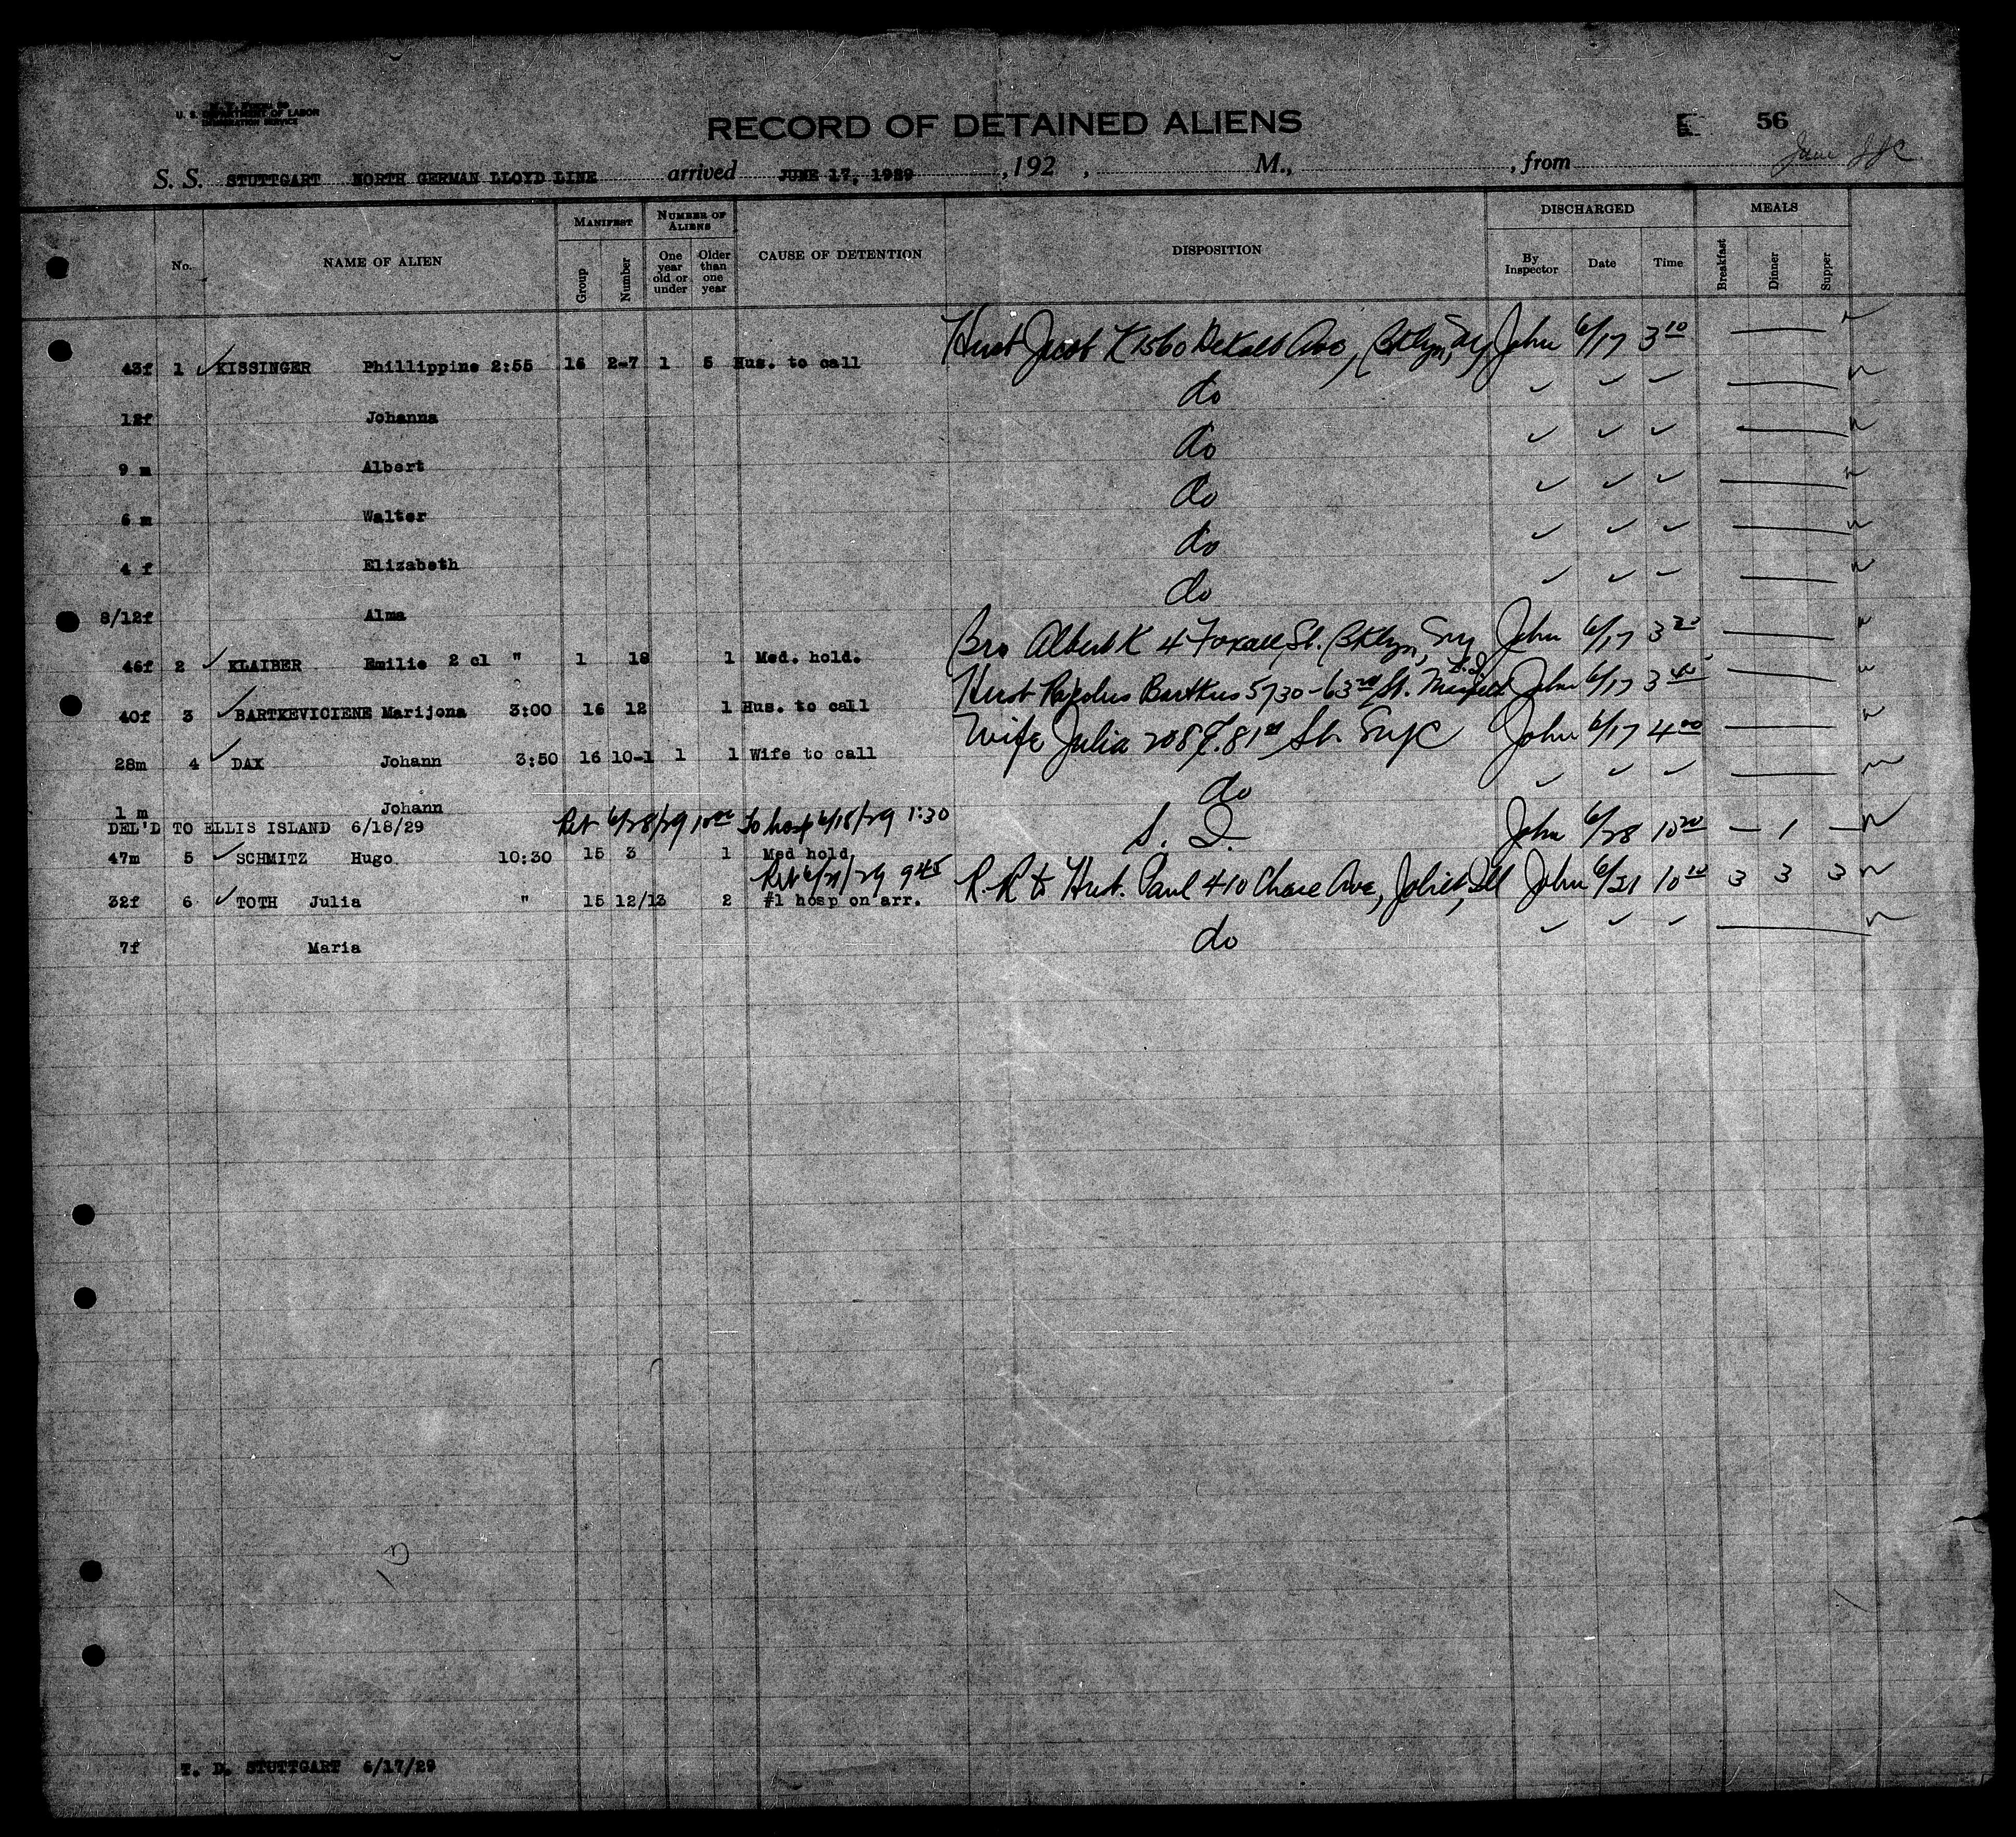 U. S. DEPARTMENT OF LABOR
IMMIGRATION SERVICE
RECORD OF DETAINED ALIENS
56
S. S. STUTTGART NORTH GERMAN LLOYD LINE arrived JUNE 17, 1929 , 192 , M., , from
No. NAME OF ALIEN MANIFEST Group Number NUMBER OF ALIENS One year old or under Older than one year CAUSE OF DETENTION DISPOSITION DISCHARGED By Inspector Date Time MEALS Breakfast Dinner Supper
43f 1 ✓ KISSINGER Phillippine 2:55 16 2-7 1 5 Hus. to call Husb Jacob K 1560 DeKalb Ave, Bklyn, Ny John 6/17 3 10
12f Johanna do ✓ ✓ ✓
9 m Albert do ✓ ✓ ✓
6 m Walter do ✓ ✓ ✓
4 f Elizabeth do ✓ ✓ ✓
8/12f Alma do ✓ ✓ ✓
46f 2 ✓ KLAIBER Emilie 2 cl " 1 18 1 Med. hold. Bro Albert K 4 Foxall St. Bklyn, Ny John 6/17 3 20
40f 3 ✓ BARTKEVICIENE Marijona 3:00 16 12 1 Hus. to call Husb Bartkus 5730-63rd St. L.I. John 6/17 3 40
28m 4 ✓ DAX Johann 3:50 16 10-1 1 1 Wife to call Wife Julia 208 E. 81st St. NyC John 6/17 4 00
1 m Johann do ✓ ✓ ✓
DEL'D TO ELLIS ISLAND 6/18/29 Ret 6/28/29 10 00 To hosp 6/18/29 1:30
47m 5 ✓ SCHMITZ Hugo 10:30 15 3 1 Med hold S. I. John 6/28 10 20 — 1 —
Ret 6/21/29 9 45
32f 6 ✓ TOTH Julia " 15 12/13 2 #1 hosp on arr. R.R to Husb. Paul 410 Chase Ave, Joliet, Ill John 6/21 10 10 3 3 3
7f Maria do ✓ ✓ ✓
T. D. STUTTGART 6/17/29